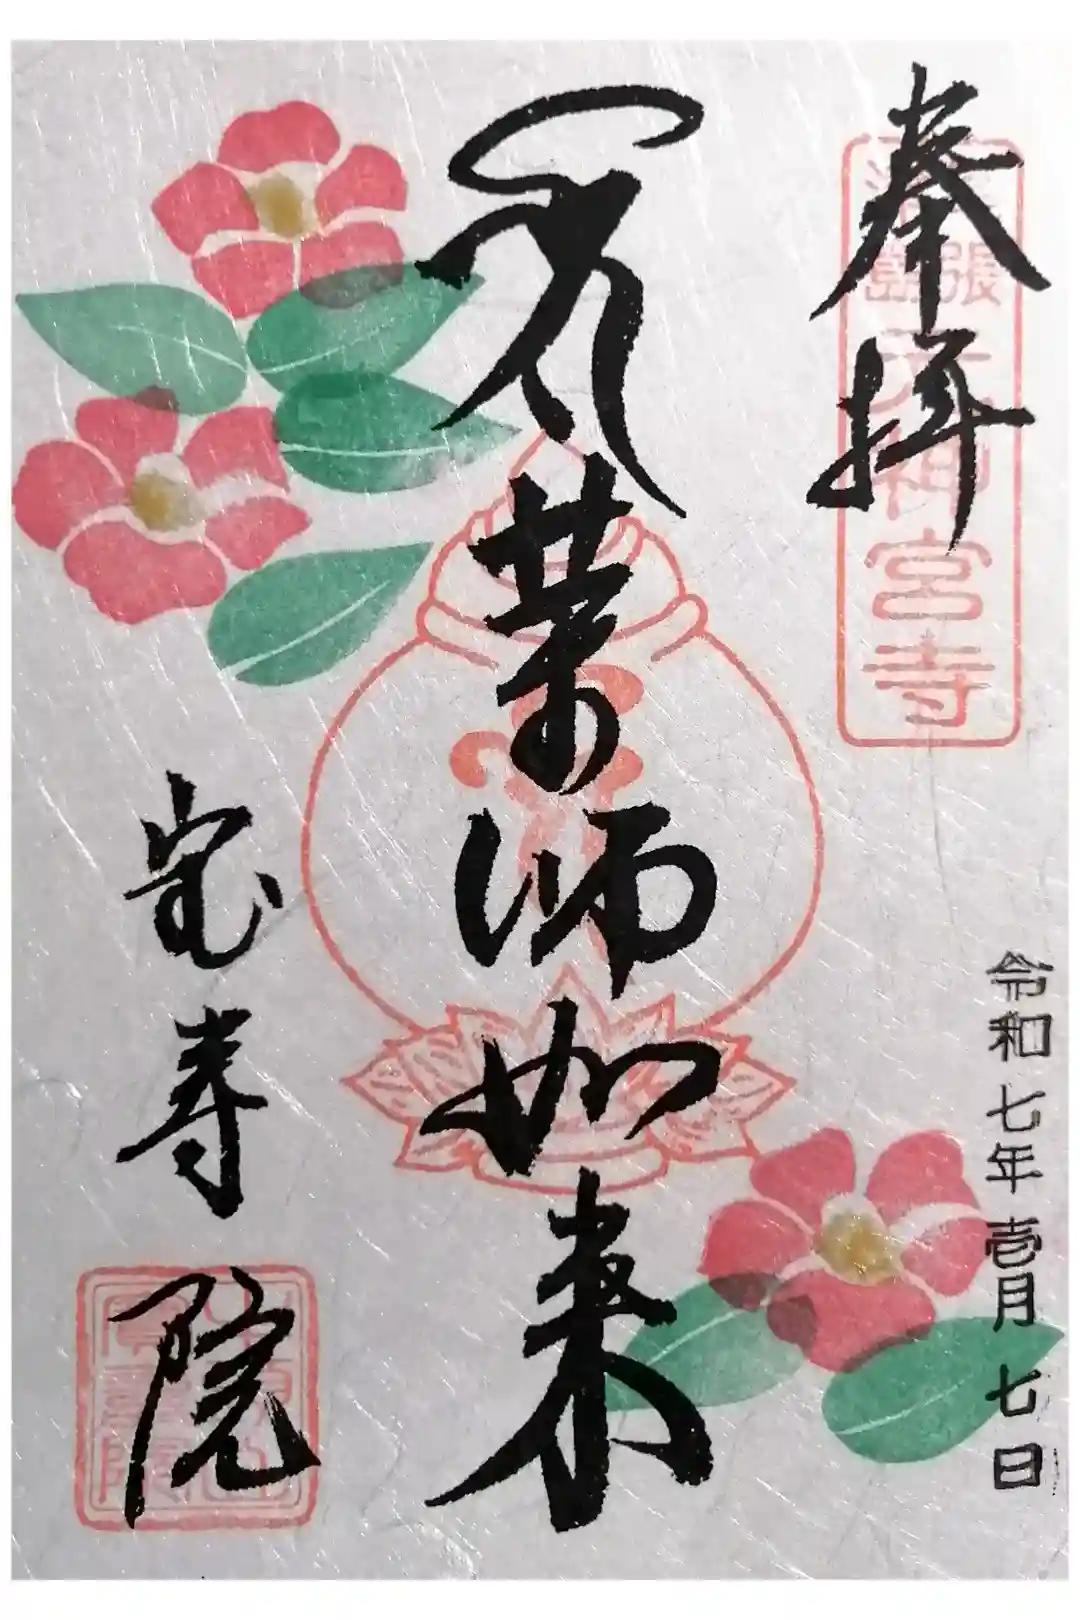 奉拝
張
天神宮寺
令和七年壱月七日
薬師如来
宝寿院